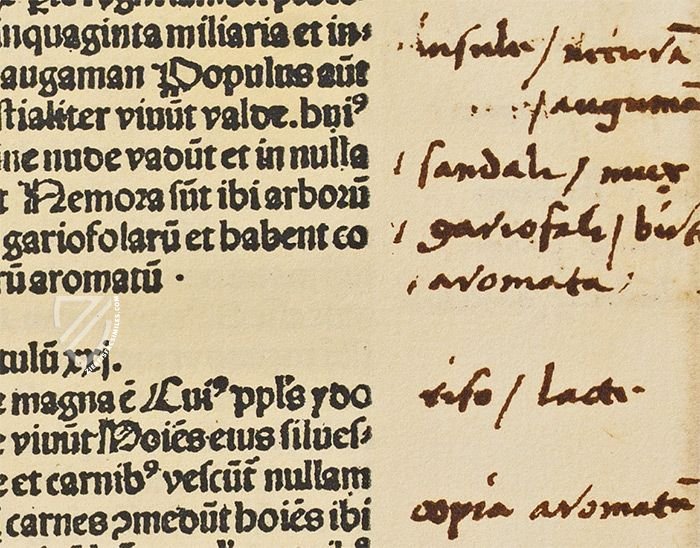 inquaginta miliaria et in-
augaman Populus aūt
stialiter viuūt valde. huiꝰ
ine nude vadūt et in nulla
t Nemora sūt ibi arborū
gariofolarū et habent co
rū aromatū ·
tulū xxj.
e magna ē Cuiꝰ ppl's ydo
e viuūt Hoīes eius silues-
e et carnibꝰ vescūt' nullam
carnes ꝯmedūt hoīes ibi
insule /
/ augumā
sandali / nux
gariofali /
aromata
riso / lacte
copia aromatū